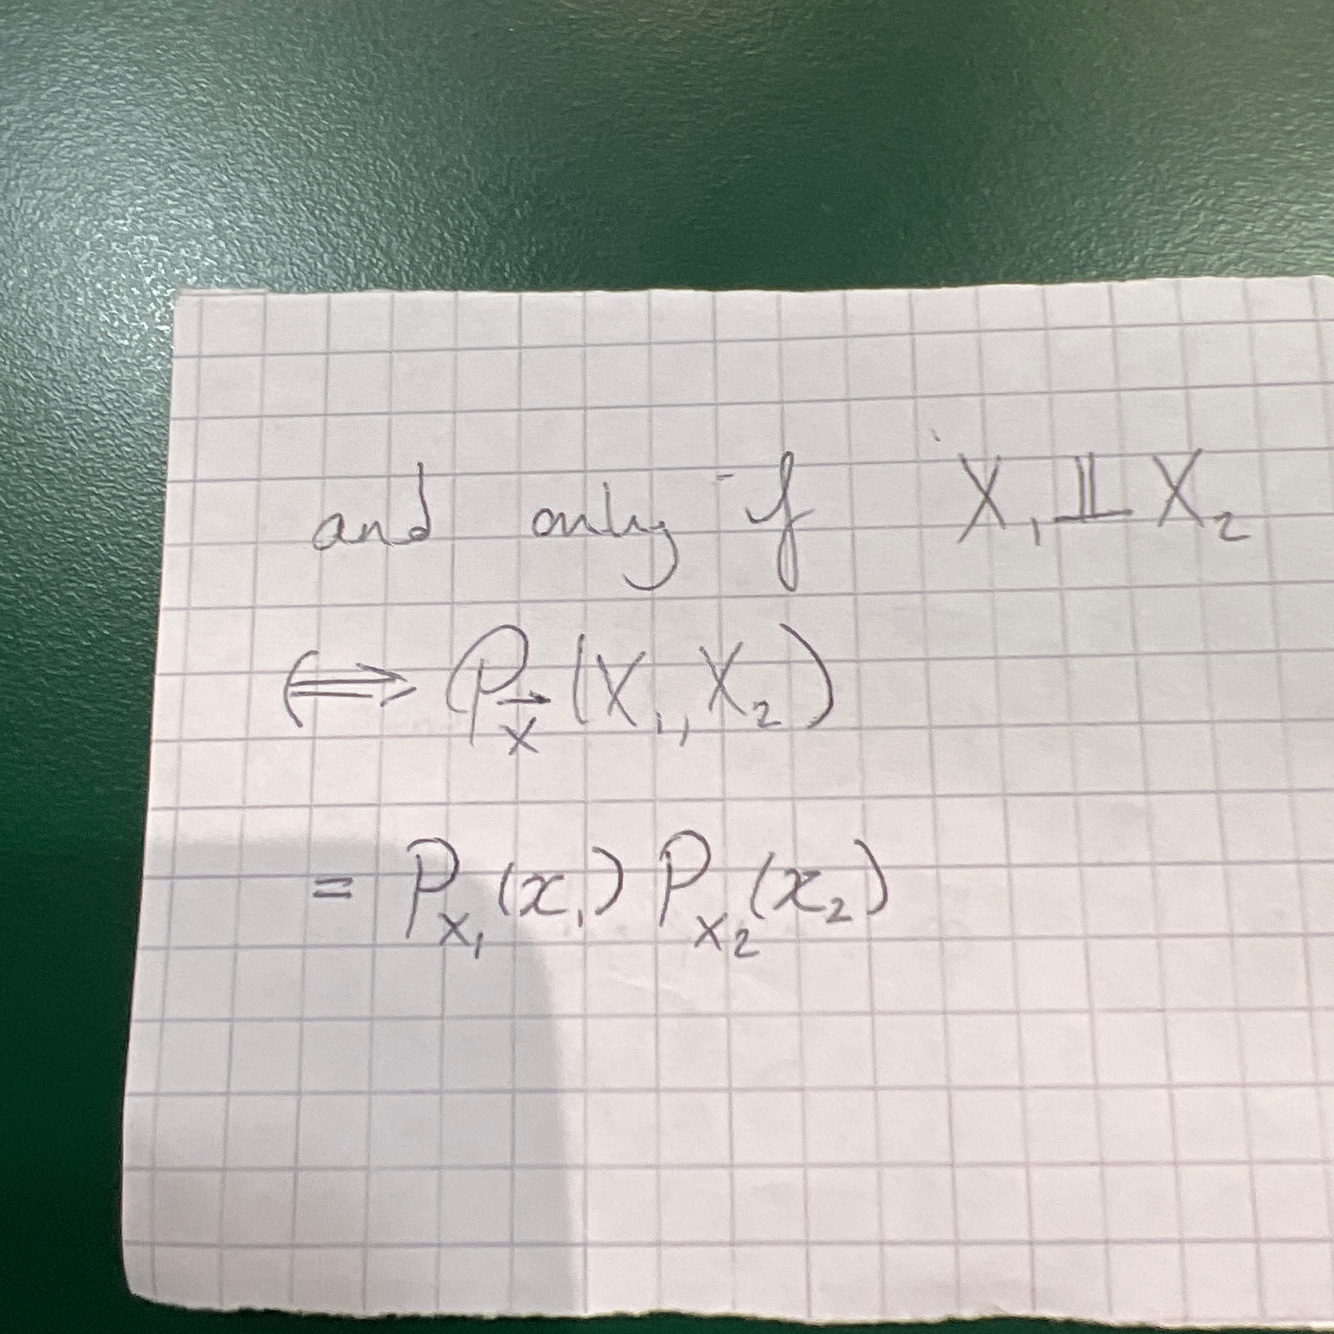 and only if X₁ ⫫ X₂
⟺ P_X⃗ (X₁, X₂)
= P_X₁ (x₁) P_X₂ (x₂)